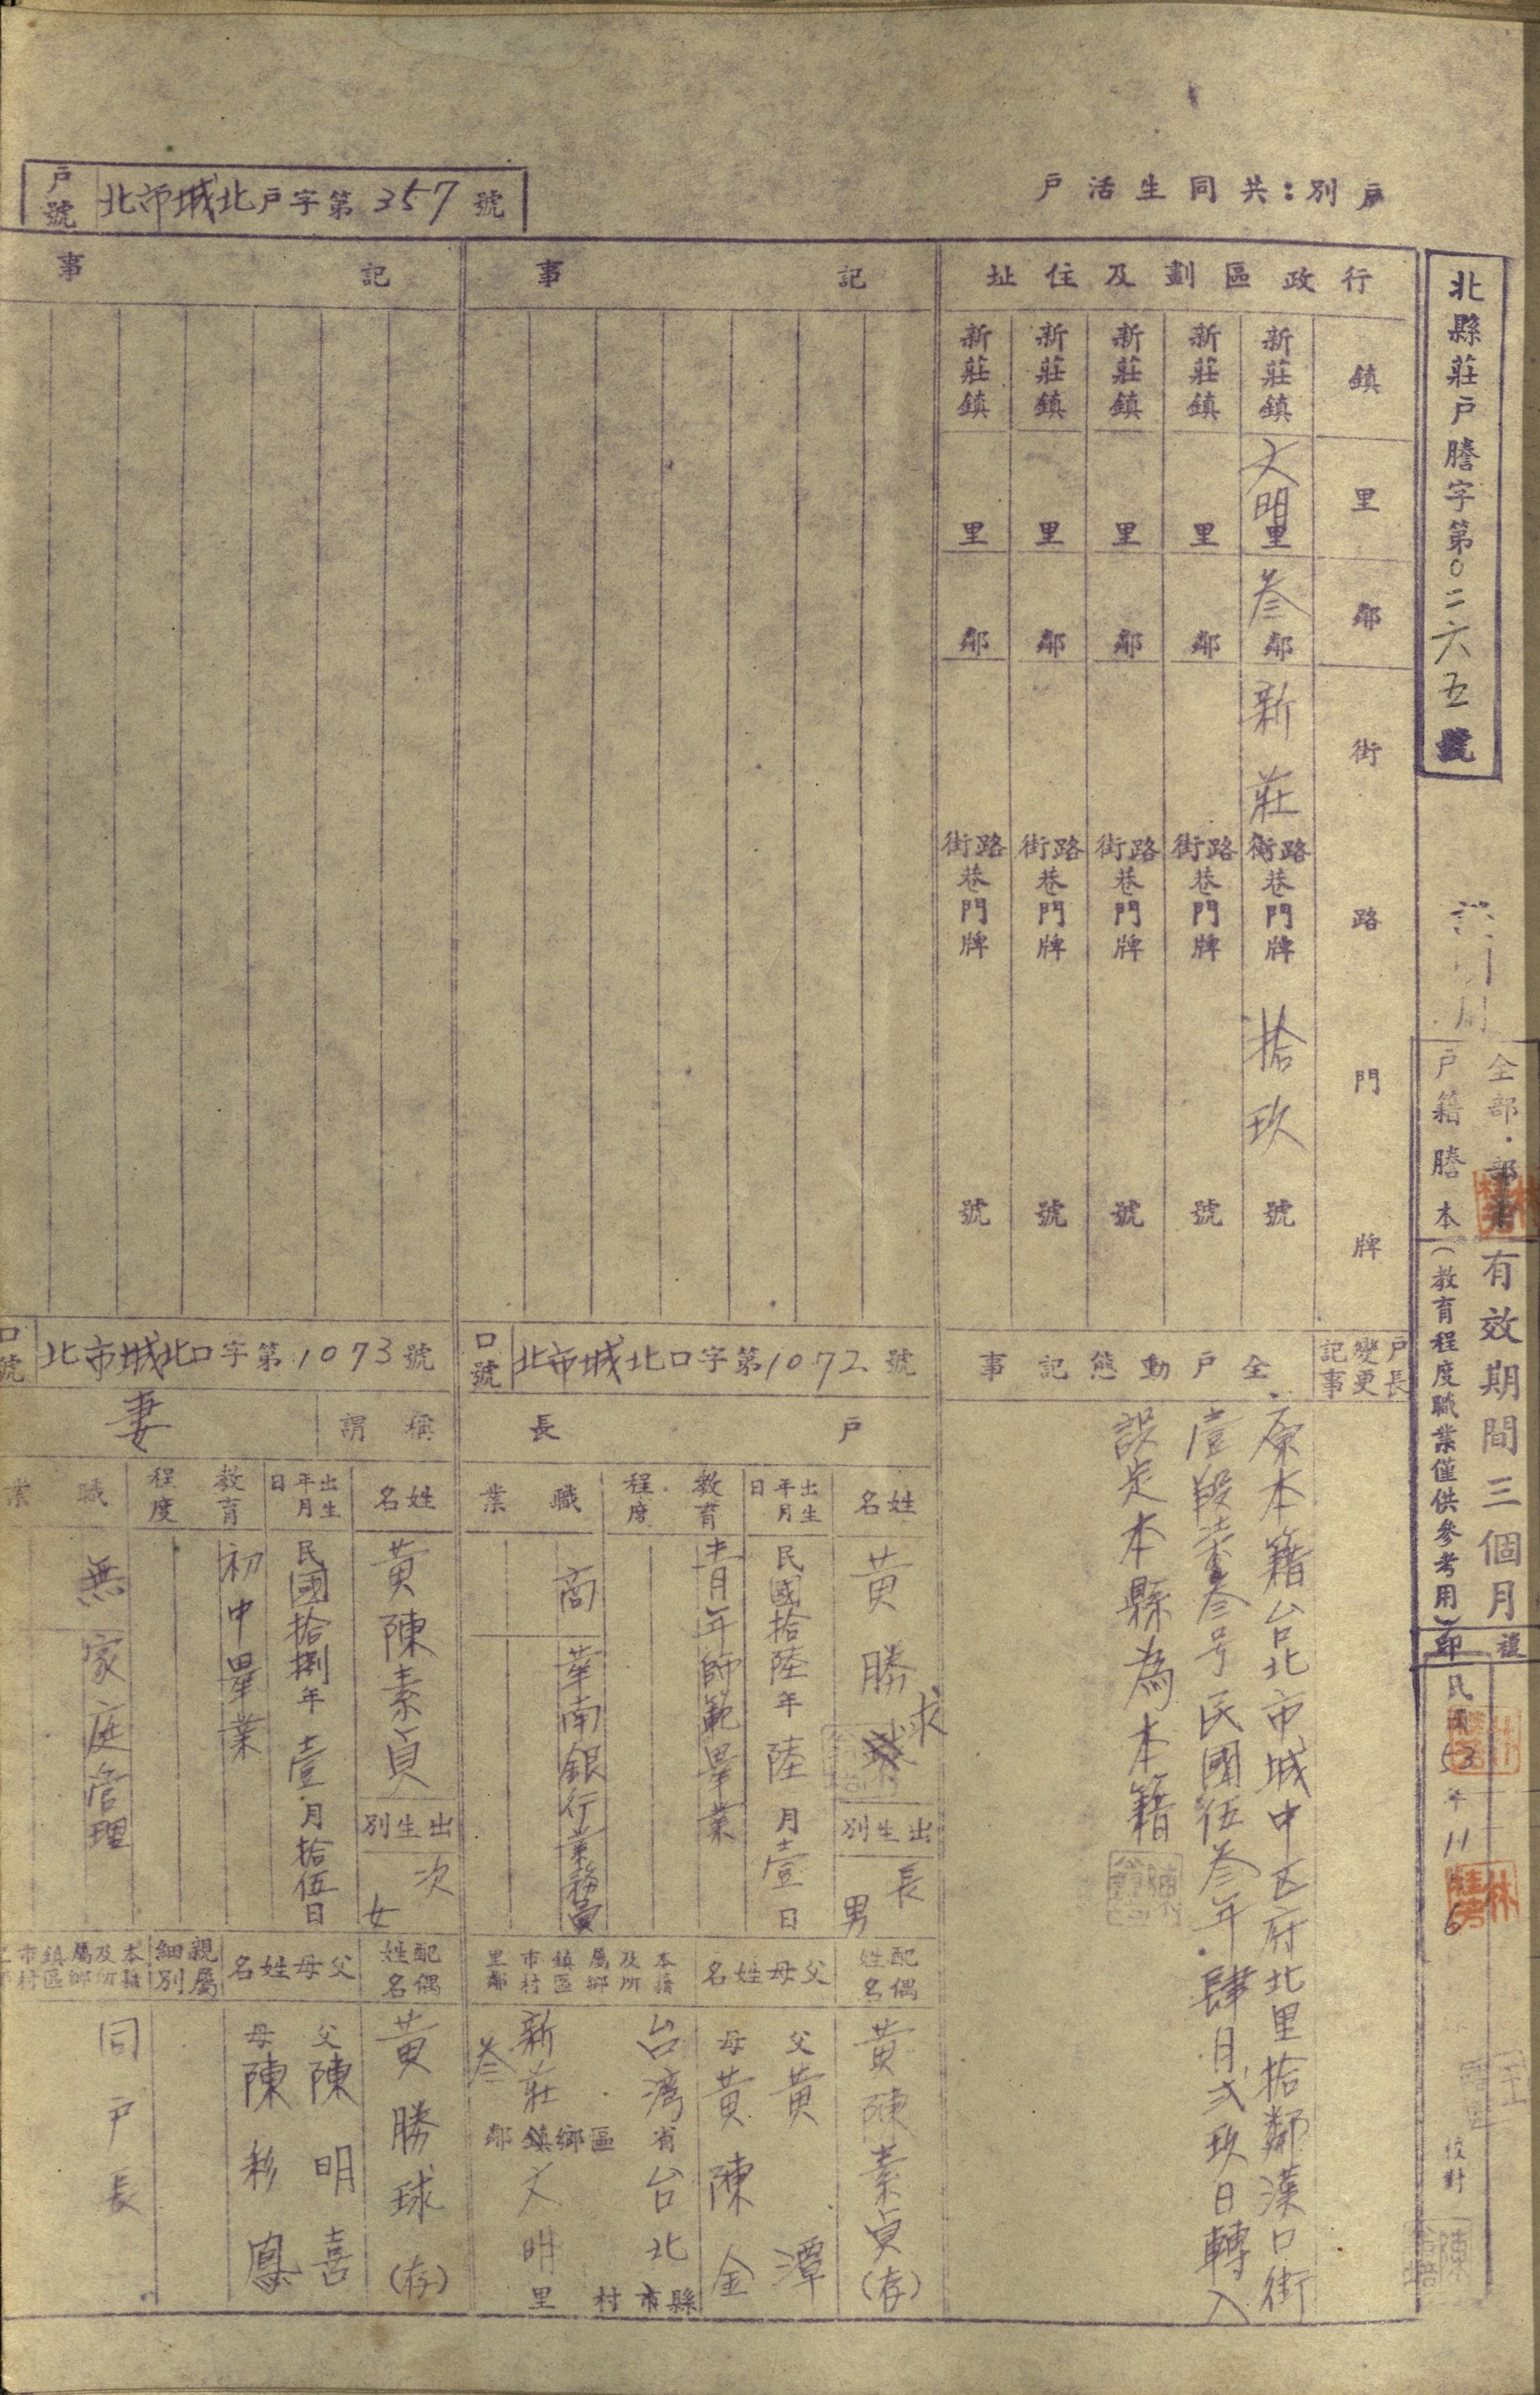 戶別：共同生活戶
戶號 北市城北戶字第357號
北縣莊戶謄字第0二六五號
全部
戶籍謄本
有效期間三個月
（教育程度職業僅供參考用）
複印
民國53年11月6
校對
行政區劃及住址
鎮 里 鄰 街路門牌
新莊鎮文明里叁鄰新莊街路巷門牌拾玖號
新莊鎮 里 鄰 街路巷門牌 號
新莊鎮 里 鄰 街路巷門牌 號
新莊鎮 里 鄰 街路巷門牌 號
新莊鎮 里 鄰 街路巷門牌 號
戶長變更記事
全戶動態記事
原本籍台北市城中区府北里拾鄰漢口街
壹段 叁号民國伍叁年肆月弍玖日轉入
設定本縣為本籍
記事
口號 北市城北口字第1072號
戶長
姓名 黃勝球
出生別 長男
出生年月日 民國拾陸年陸月壹日
教育程度 青年師範畢業
職業 商 華南銀行業務員
配偶姓名 黃陳素貞(存)
父母姓名 父黃潭
母黃陳金
本籍及所屬鄉鎮區市村里鄰
台灣省台北縣市
新莊區鄉鎮文明村里
叁鄰
記事
口號 北市城北口字第1073號
稱謂 妻
姓名 黃陳素貞
出生別 次女
出生年月日 民國拾捌年壹月拾伍日
教育程度 初中畢業
職業 無 家庭管理
配偶姓名 黃勝球(存)
父母姓名 父陳明喜
母陳彩鳳
親屬細別
本籍及所屬鄉鎮區市村里鄰
同戶長